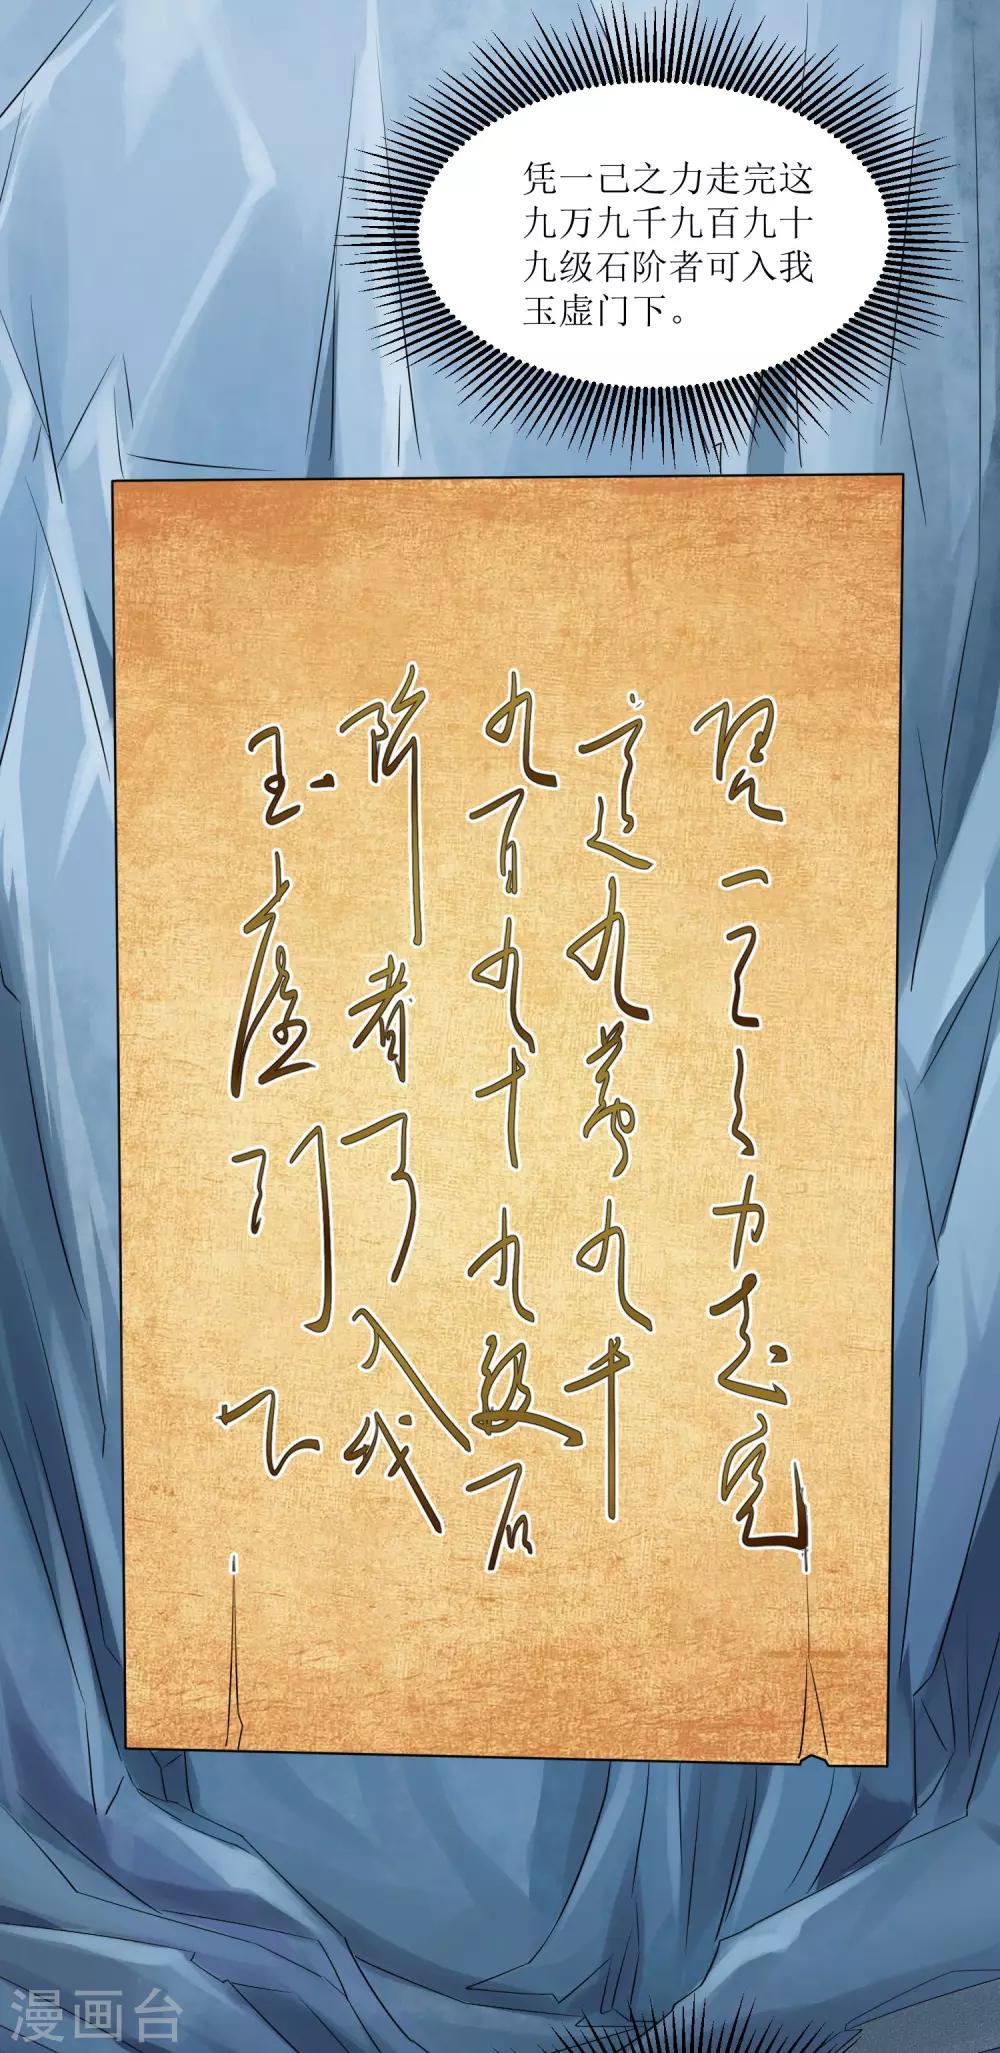 凭一己之力走完这
九万九千九百九十
九级石阶者可入我
玉虚门下。
凭一己之力走完
这九萬九千
九百九十九级石
阶者可入我
玉虚门下
漫画台